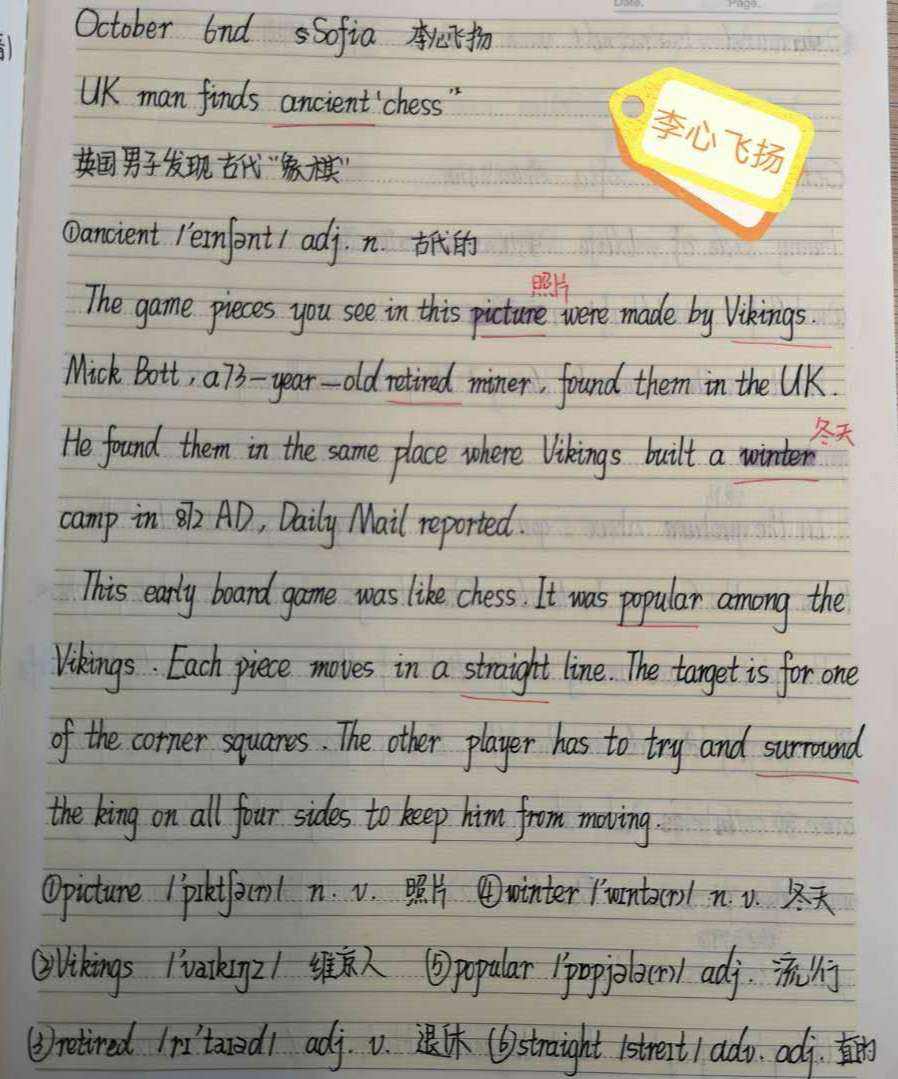 Date. Page.
October 6nd sSofia 李心飞扬
UK man finds ancient'chess"
李心飞扬
英国男子发现古代"象棋"
①ancient /'eɪnʃənt/ adj. n. 古代的
照片
The game pieces you see in this picture were made by Vikings.
Mick Bott, a 73-year-old retired miner, found them in the UK.
冬天
He found them in the same place where Vikings built a winter
camp in 872 AD, Daily Mail reported.
This early board game was like chess. It was popular among the
Vikings. Each piece moves in a straight line. The target is for one
of the corner squares. The other player has to try and surround
the king on all four sides to keep him from moving.
①picture /'pɪktʃə(r)/ n. v. 照片 ④winter /'wɪntə(r)/ n. v. 冬天
②Vikings /'vaɪkɪŋz/ 维京人 ⑤popular /'pɒpjələ(r)/ adj. 流行
③retired /rɪ'taɪəd/ adj. v. 退休 ⑥straight /streɪt/ adv. adj. 直的